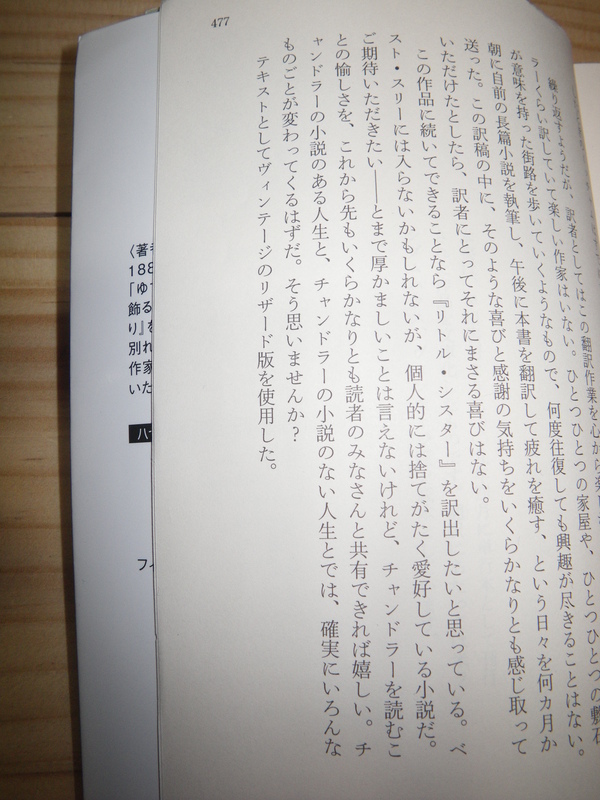 繰り返すようだが、訳者としてはこの翻訳作業を心から楽し
ラーくらい訳していて楽しい作家はいない。ひとつひとつの家屋や、ひとつひとつの礫石
が意味を持った街路を歩いていくようなもので、何度往復しても興趣が尽きることはない。
朝に自前の長篇小説を執筆し、午後に本書を翻訳して疲れを癒す、という日々を何カ月か
送った。この訳稿の中に、そのような喜びと感謝の気持ちをいくらかなりとも感じ取って
いただけたとしたら、訳者にとってそれにまさる喜びはない。
この作品に続いてできることなら『リトル・シスター』を訳出したいと思っている。ベ
スト・スリーには入らないかもしれないが、個人的には捨てがたく愛好している小説だ。
ご期待いただきたい――とまで厚かましいことは言えないけれど、チャンドラーを読むこ
との愉しさを、これから先もいくらかなりとも読者のみなさんと共有できれば嬉しい。チ
ャンドラーの小説のある人生と、チャンドラーの小説のない人生とでは、確実にいろんな
ものごとが変わってくるはずだ。そう思いませんか?
テキストとしてヴィンテージのリザード版を使用した。
477
〈著者
188
「ゆ
飾る
り』を
別れ
作家
いた
ハー
フィ